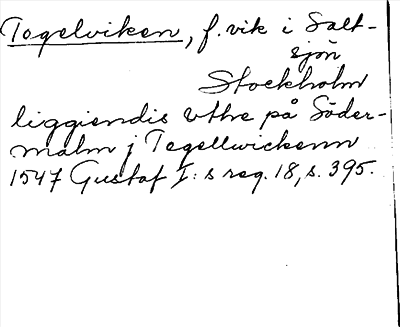 Tegelviken, f. vik i Salt-
sjön
Stockholm
liggiendis vthe på Söder-
malm j Tegellwickenn
1547 Gustaf I:s reg. 18, s. 395.